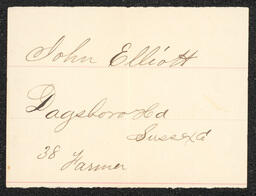 John Elliott
Dagsboro Hd
Sussex Co
38
Farmer